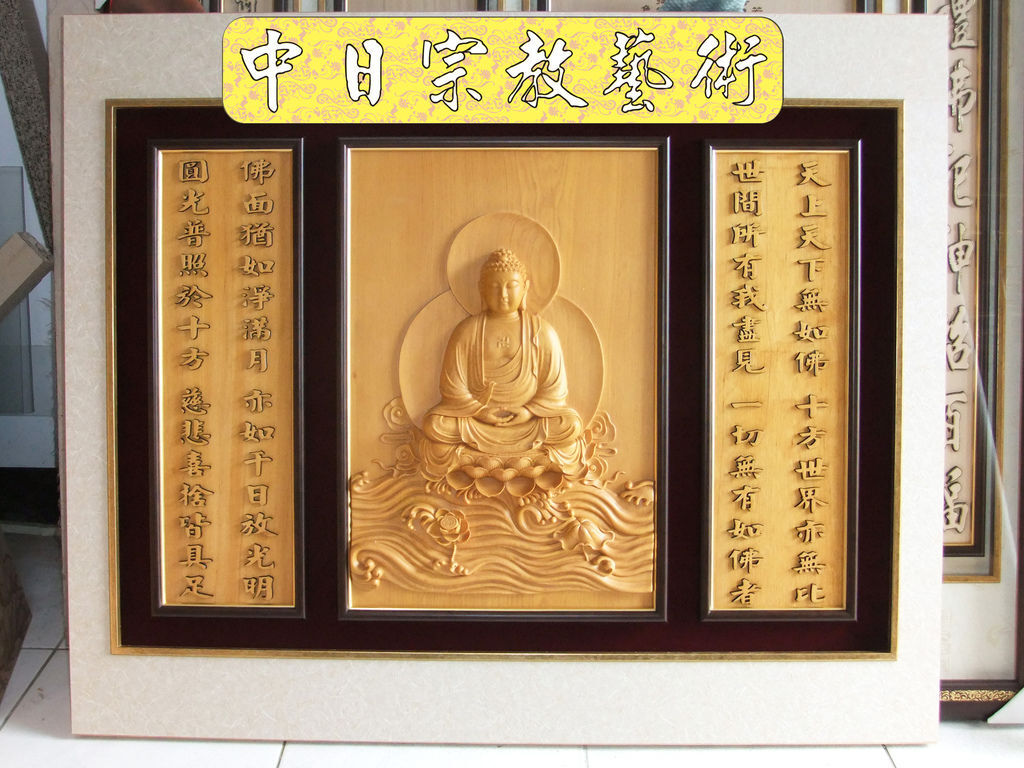 中日宗教藝術
天上天下無如佛 十方世界亦無比
世間所有我盡見 一切無有如佛者
佛面猶如淨滿月 亦如千日放光明
圓光普照於十方 慈悲喜捨皆具足